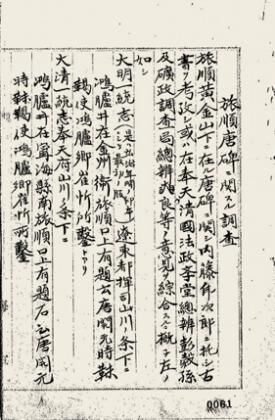 旅順唐碑ニ関スル調査
旅順黄金山下ニ在ル唐碑ニ関シ内藤虎次郎ニ托シ古
書ヲ考攷シ或ハ在奉天清国法政学堂総辦彭穀孫
及礦政調査局総辦爽良等ノ意見ヲ綜合スルニ概子左ノ
如シ
大明一統志 遼東都指揮司山川ノ条下ニ
鴻臚井在金州衛旅順口上有題云唐開元時勅
鞨使鴻臚卿崔忻所鑿トアリ
大清一統志奉天府山川ノ条下ニ
鴻臚井在寧海県南旅順口上有題石云唐開元
時勅鞨使鴻臚卿崔忻所鑿
0061